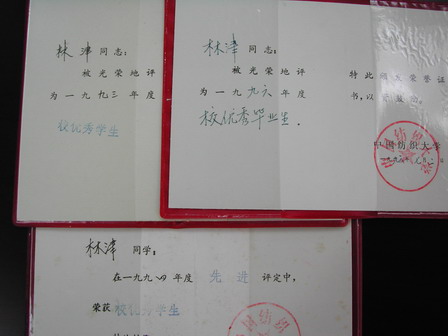 林津 同志：
被光荣地评
为一九九三年度
校优秀学生
林津 同志：
被光荣地评
为一九九六年度
校优秀毕业生．
特此颁发荣誉证
书，以
中国纺织大学
林津 同学：
在一九九四年度 先进 评定中，
荣获 校优秀学生